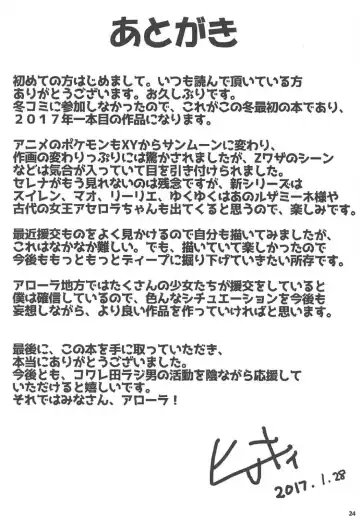 あとがき
初めての方はじめまして。いつも読んで頂いている方
ありがとうございます。お久しぶりです。
冬コミに参加しなかったので、これがこの冬最初の本であり、
2017年一本目の作品になります。
アニメのポケモンもXYからサンムーンに変わり、
作画の変わりっぷりには驚かされましたが、Zワザのシーン
などは気合が入っていて目を引き付けられました。
セレナがもう見れないのは残念ですが、新シリーズは
スイレン、マオ、リーリエ、ゆくゆくはあのルザミーネ様や
古代の女王アセロラちゃんも出てくると思うので、楽しみです。
最近援交ものをよく見かけるので自分も描いてみましたが、
これはなかなか難しい。でも、描いていて楽しかったので
今後ももっともっとディープに掘り下げていきたい所存です。
アローラ地方ではたくさんの少女たちが援交をしていると
僕は確信しているので、色んなシチュエーションを今後も
妄想しながら、より良い作品を作っていければと思います。
最後に、この本を手に取っていただき、
本当にありがとうございました。
今後とも、コワレ田ラジ男の活動を陰ながら応援して
いただけると嬉しいです。
それではみなさん、アローラ！
2017.1.28
24